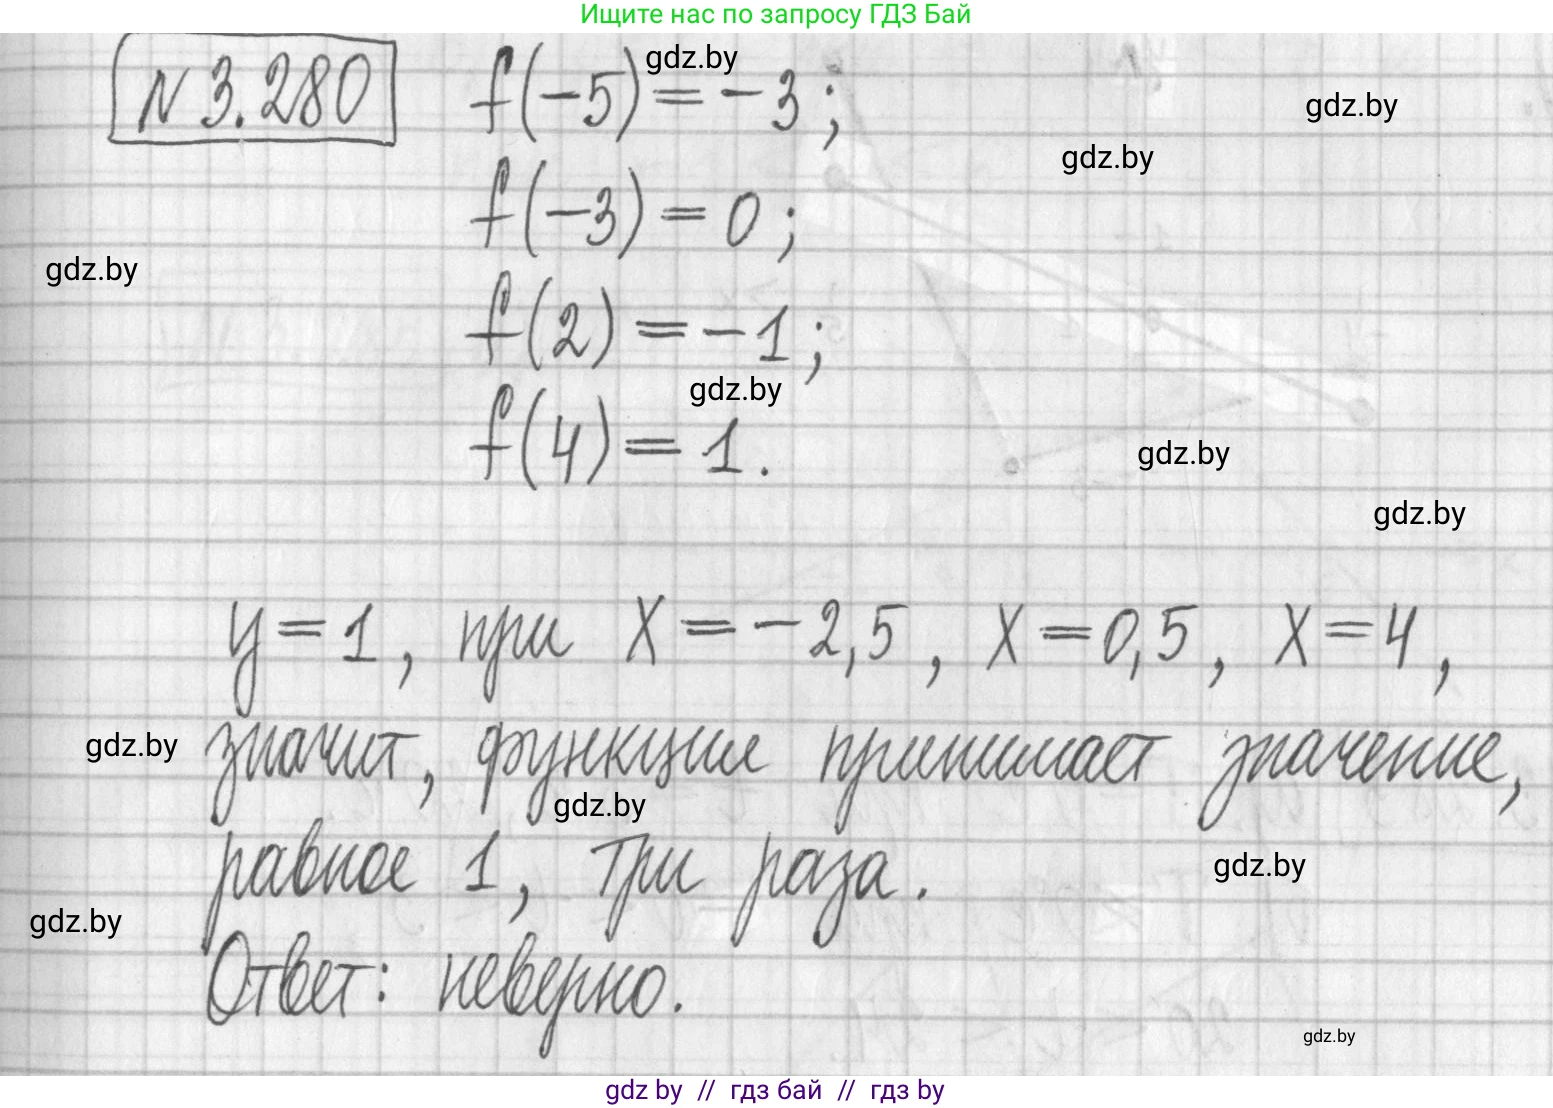 Ищите нас по запросу ГДЗ Бай
N 3.280
f(-5) = -3;
gdz.by
gdz.by
gdz.by
f(-3) = 0;
gdz.by
f(2) = -1;
gdz.by
f(4) = 1.
gdz.by
gdz.by
y = 1, при X = -2,5, X = 0,5, X = 4,
gdz.by
значит, функция принимает значение,
gdz.by
равное 1, три раза.
gdz.by
gdz.by
Ответ: неверно.
gdz.by
gdz by // гдз бай // гдз by